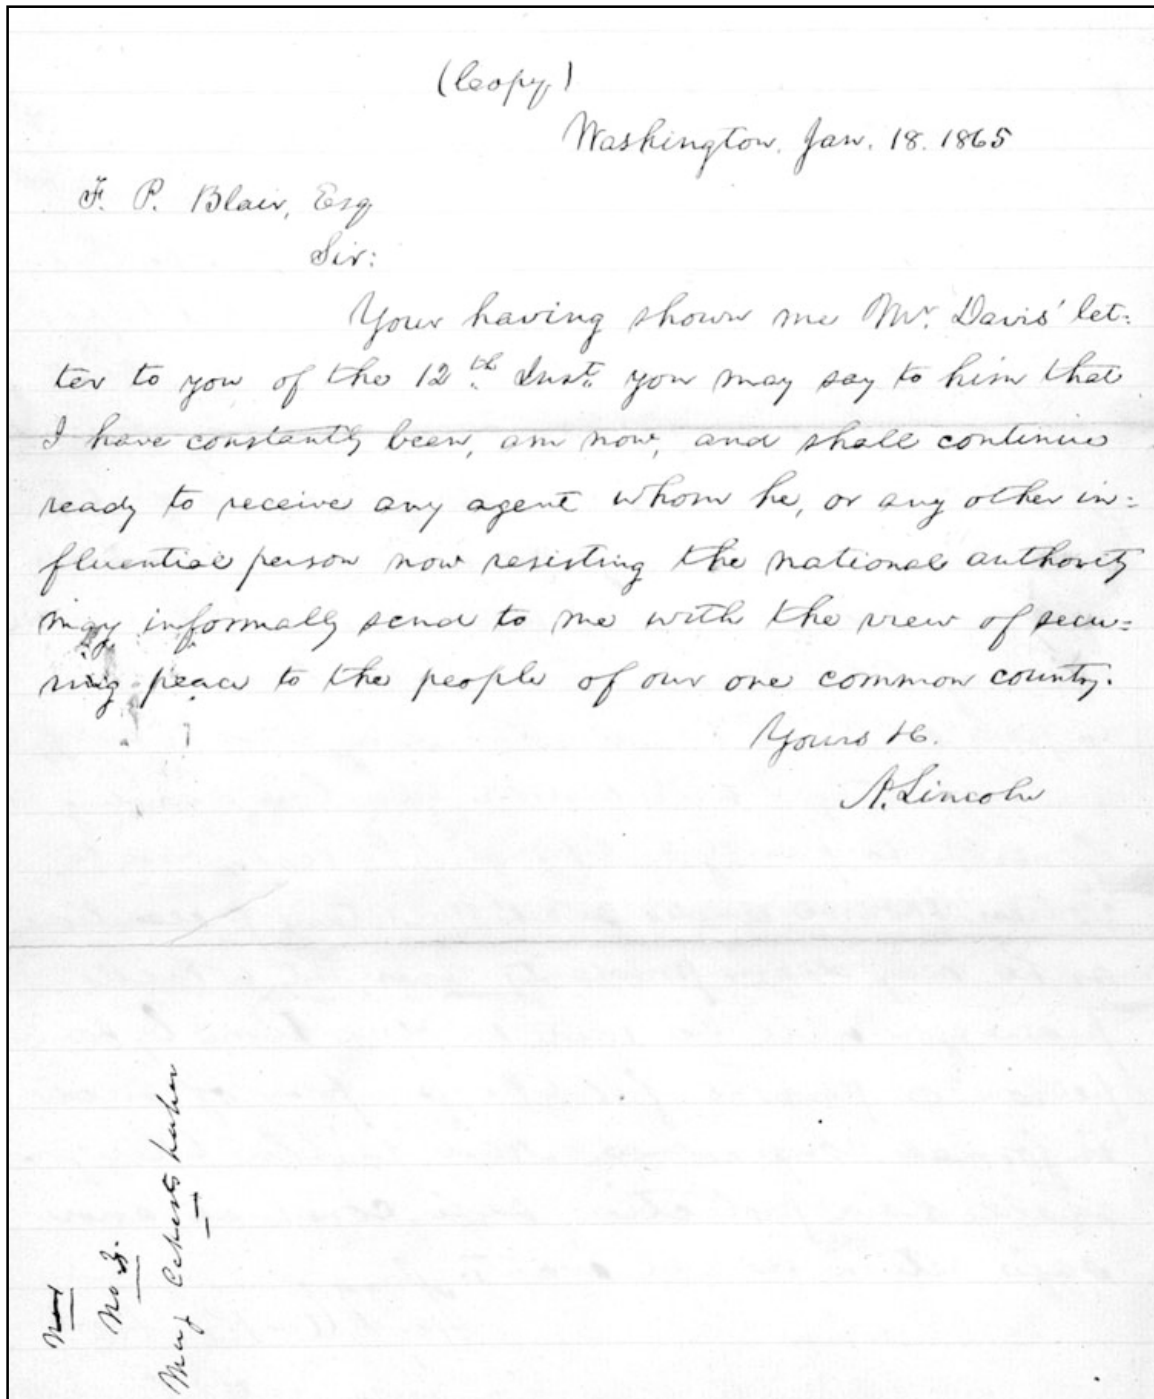 (Copy)
Washington. Jan. 18. 1865
F. P. Blair, Esq
Sir:
Your having shown me Mr. Davis' let=
ter to you of the 12th Inst. you may say to him that
I have constantly been, am now, and shall continue
ready to receive any agent whom he, or any other in=
fluential person now resisting the national authority
may informally send to me with the view of secu=
ring peace to the people of our one common country.
Yours &c.
A. Lincoln
No 3.
Maj